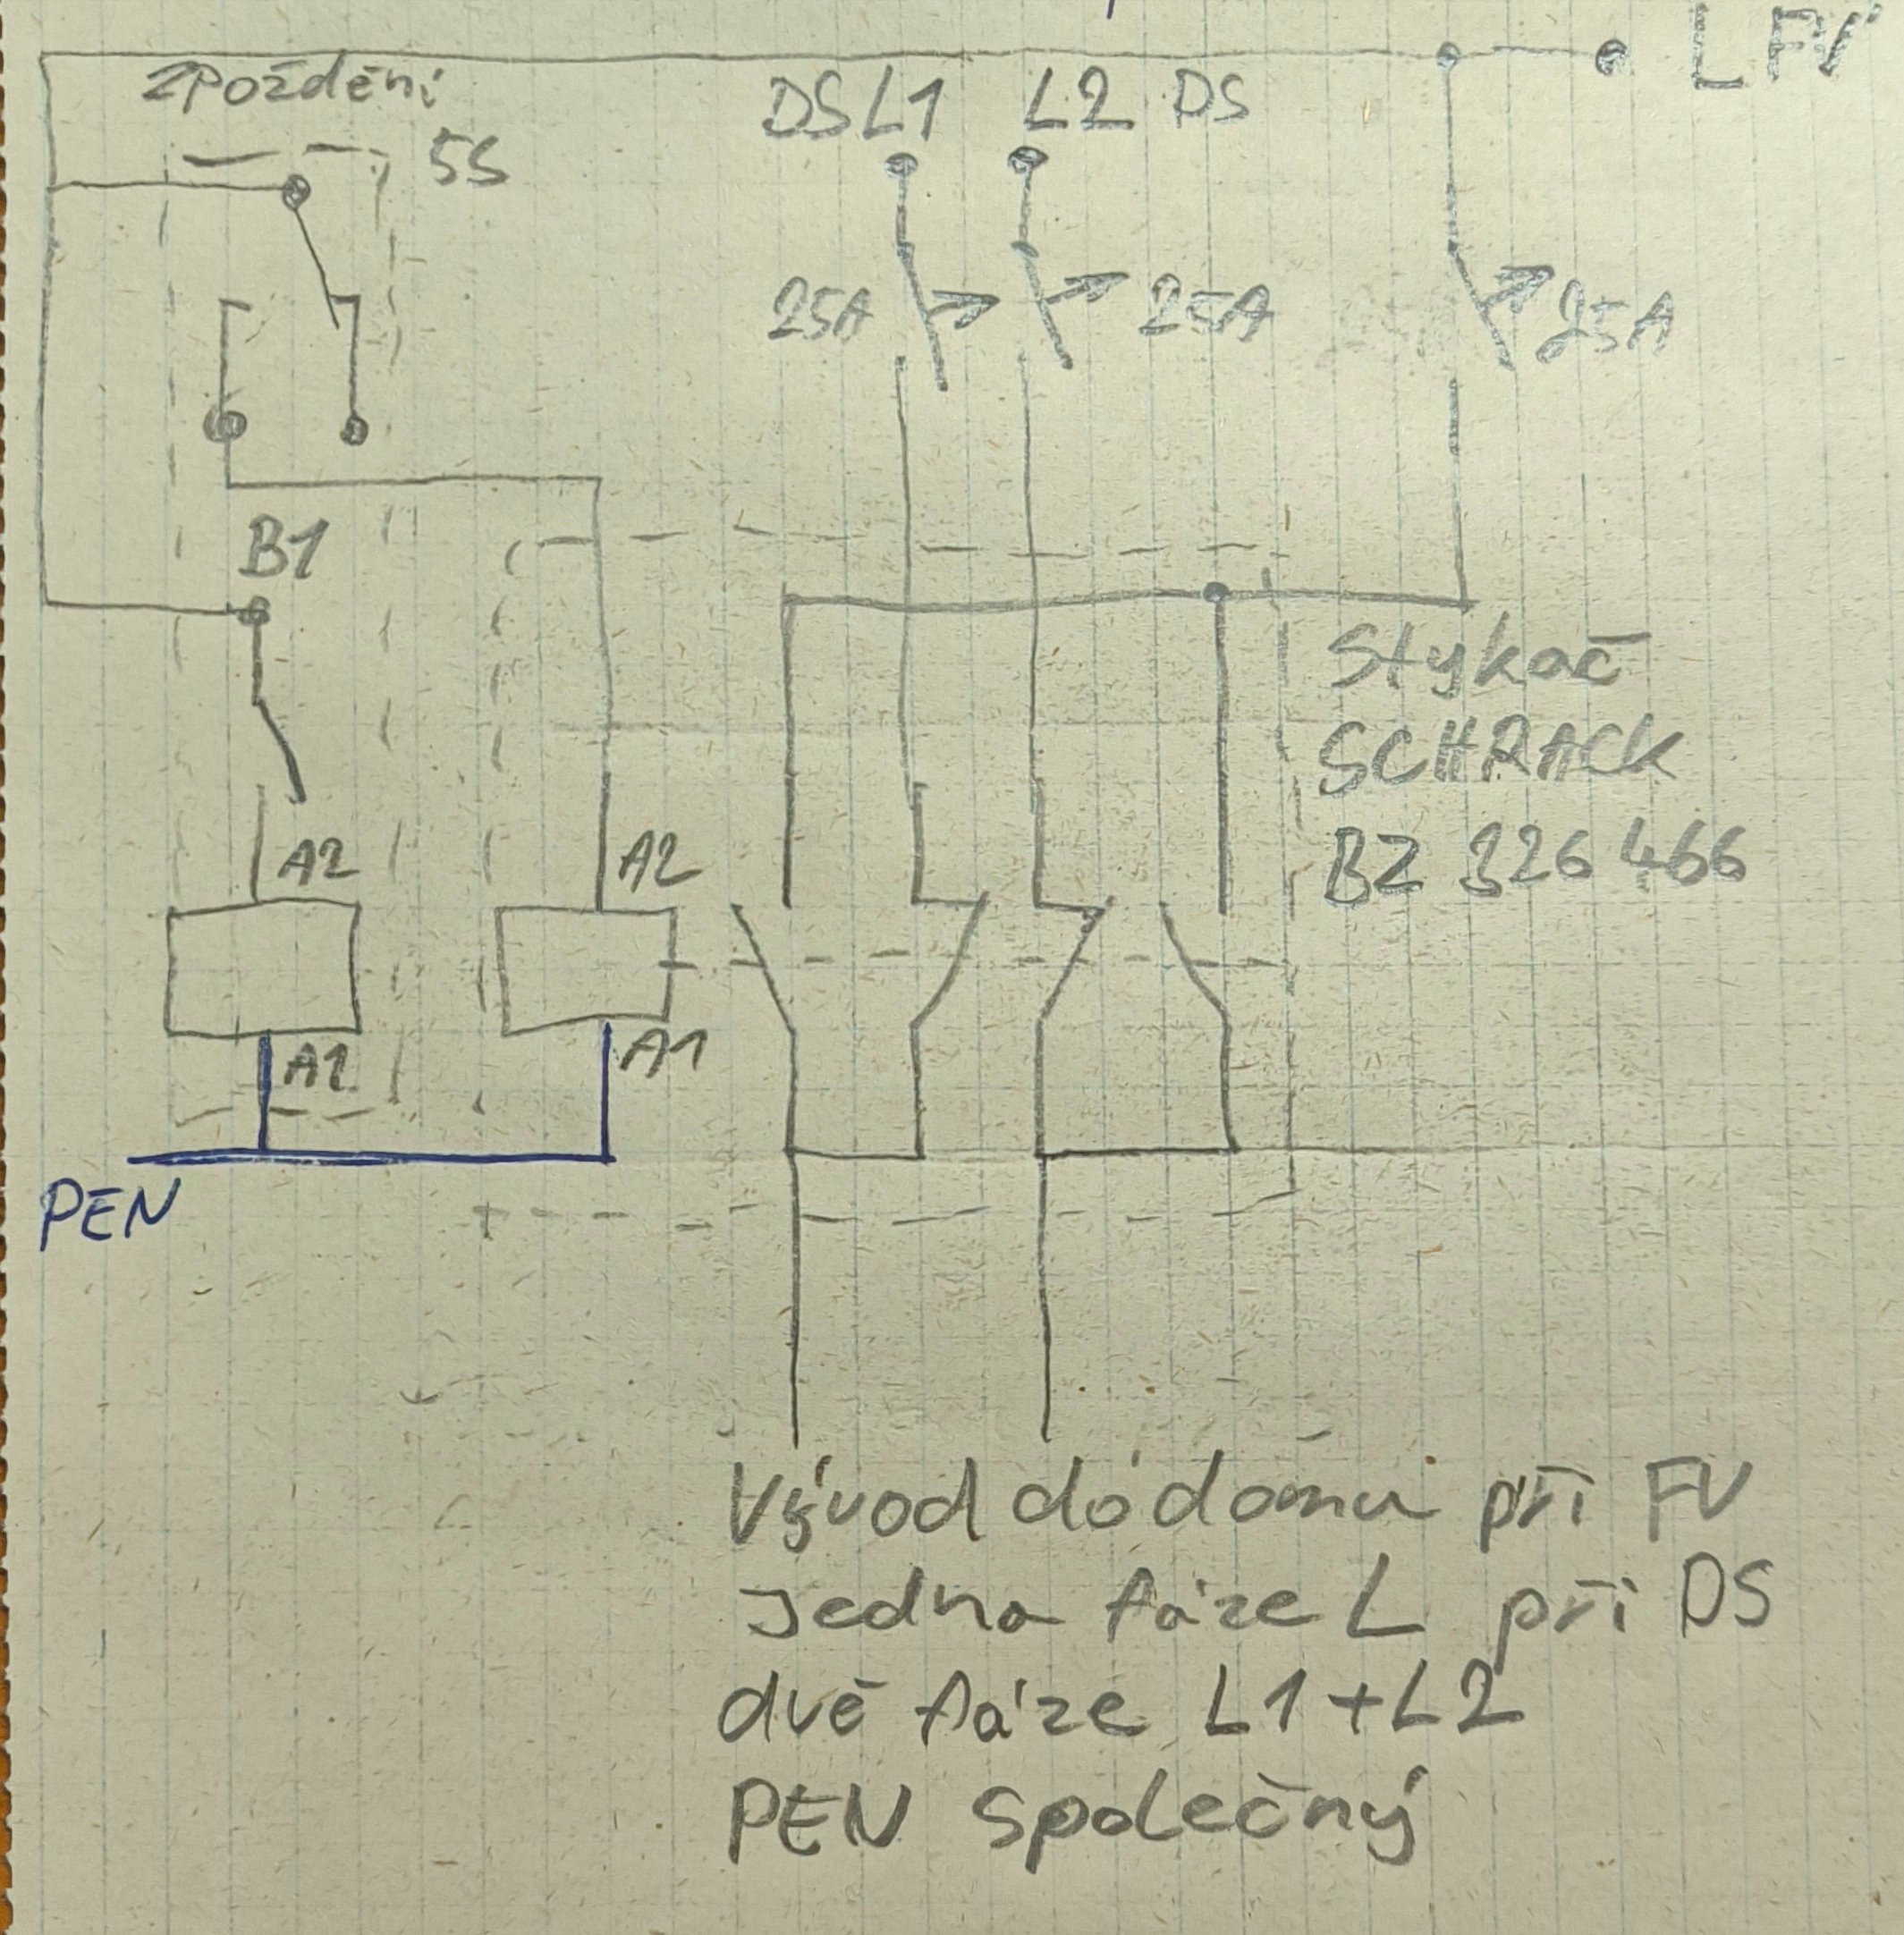 L FV
Zpoždění
5S
DS L1 L2 DS
25A
25A
25A
B1
Stykač
SCHRACK
BZ 326 466
A2
A2
A1
A1
PEN
Vývod do domu při FV
Jedna fáze L při DS
dvě fáze L1+L2
PEN Společný